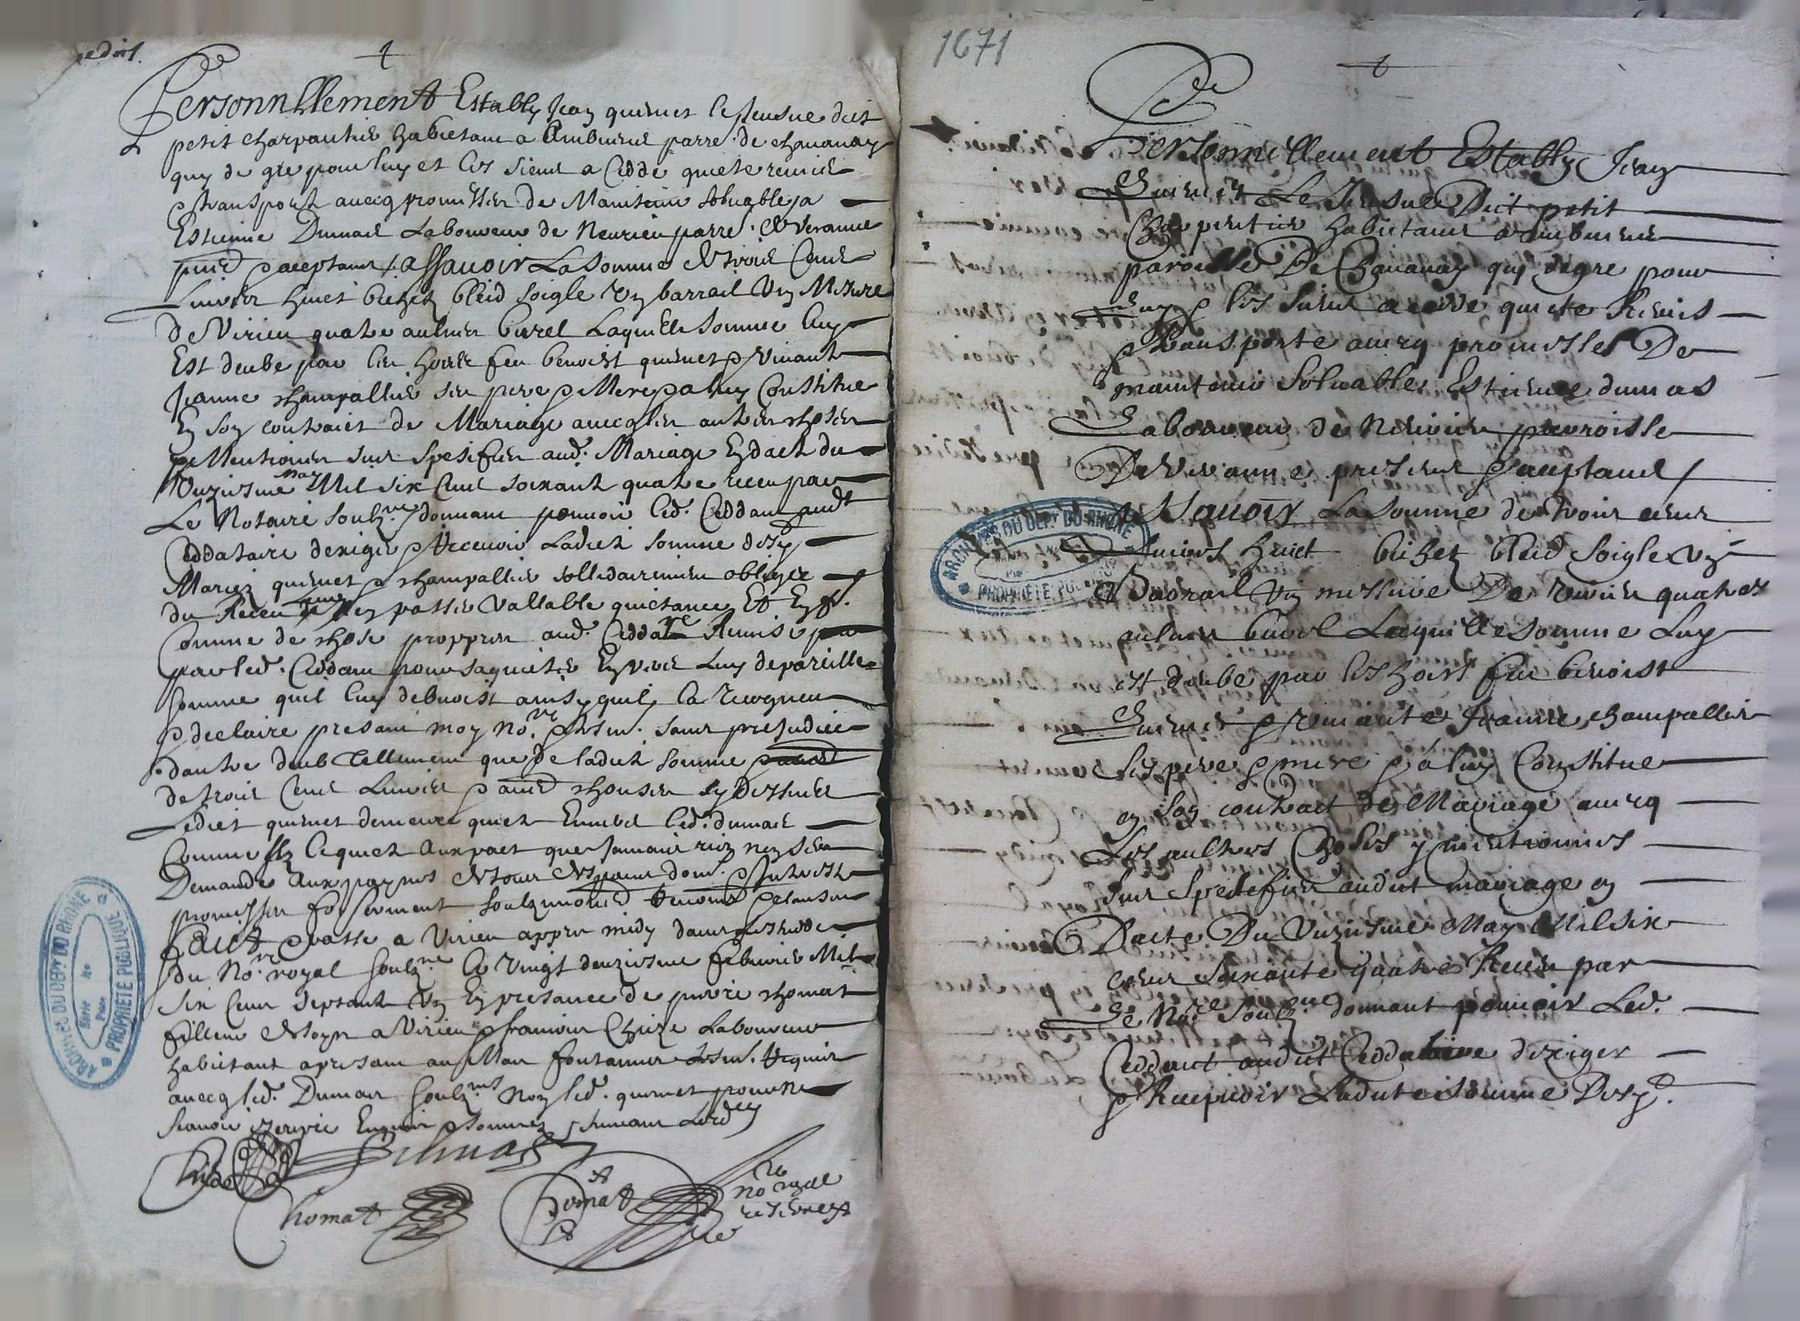 Personnellement Estably Jean quemet le Jeusne dict
petit charpantier habictant a Ambuens parre. de chavanay
quy de gre pour luy et les siens a Cedde quicte remis
& transporte avecq promesses de Maintenir solvable a
Estienne Dumas Laboureur de Neurieu parre. de Veranne
pnt & aceptant / assavoir La somme de trois Cens
Livres huict bichetz bled soigle un barrail vin Mezure
de Virieu quatre aulnes burel Laquelle somme luy
Est deube par les hoirs feu benoist quemet & vivante
Jeanne champallier ses pere & Mere & a luy Constitue
En son contraict de Mariage avecq les autres choses
y Mentionnes sur spesifies aud. Mariage En dacte du
unziesme may Mil six Cens soixante quatre receu par
Le Notaire soubz.ne donnant pouvoir led. Ceddant aud.t
Ceddataire dexiger & Recevoir Ladicte somme desd.
Mariez quemet & champallier sollidairement obliges
du Receu en passer vallable quictance Et En f.
Comme de chose propprer aud. Ceddatre Remise
par led. Ceddant pour saquicter Envers Luy de pareille
somme quil luy debvoist ainsy quil la recogneu
& declaire presant moy No.re & tesm. sans prejudice
dautre deub Tellement que de ladicte somme
de trois Cens Livres & aud choses sy dessus
Ledict quemet demeure quicte Envers led. dumas
Comme Il le quicte Avec pact que Jamais rien ny sera
Demande Aux paynes de tous despans dom. & Intrestz
promesses foy serment soubzmissions renons & clauses
Faict & passe a Virieu appres midy dans estude
du No.re royal soubz.ne Le vingt deuziesme febvrier Mil
six Cens septante un En presance de pierre chomat
filleur de soye a Virieu & francois Chize Laboureur
habictant a presant au Mas fontannes tesm. Requis
avecq led. Dumas soubz.nes Non led. quemet pour ne
scavoir escrire Enquis & sommes suivant Lord.ce
Chize Dumas
Chomat Chomat
no.re royal
1671
Personnellement Estably Jean
Quemet Le Jeusne Dict petit
Charpentier habictant a ambuens
paroisse De Chavanay quy de gre pour
Luy & les siens a cedde quicte Remis
& transporte avecq promesses De
maintenir solvables Estienne dumas
Laboureur de Neurieu parroisse
De Veranne present & aceptant /
Assavoir La somme de trois cens
Livres huict bichetz bled soigle un
Barrail vin messure De virieu quatres
aulnes burel Laquelle somme Luy
est deube par les hoirs feu benoist
Quemet & vivante Jeanne champallier
ses pere & mere & a luy Constitue
en son contract de Mariage avecq
Les aultres Choses y mentionnes
sur spedefies audict mariage en
Dacte Du unziesme May Mil six
cens soixante quatre Receu par
Le No.re soubz.ne donnant pouvoir Led.
Ceddant audict Ceddataire dexiger
& Recepvoir Ladicte somme Desd.
ARCHIVES DU DEPt DU RHONE
PROPRIÉTÉ PUBLIQUE
ARCHIVES DU DEPt DU RHONE
PROPRIÉTÉ PUBLIQUE